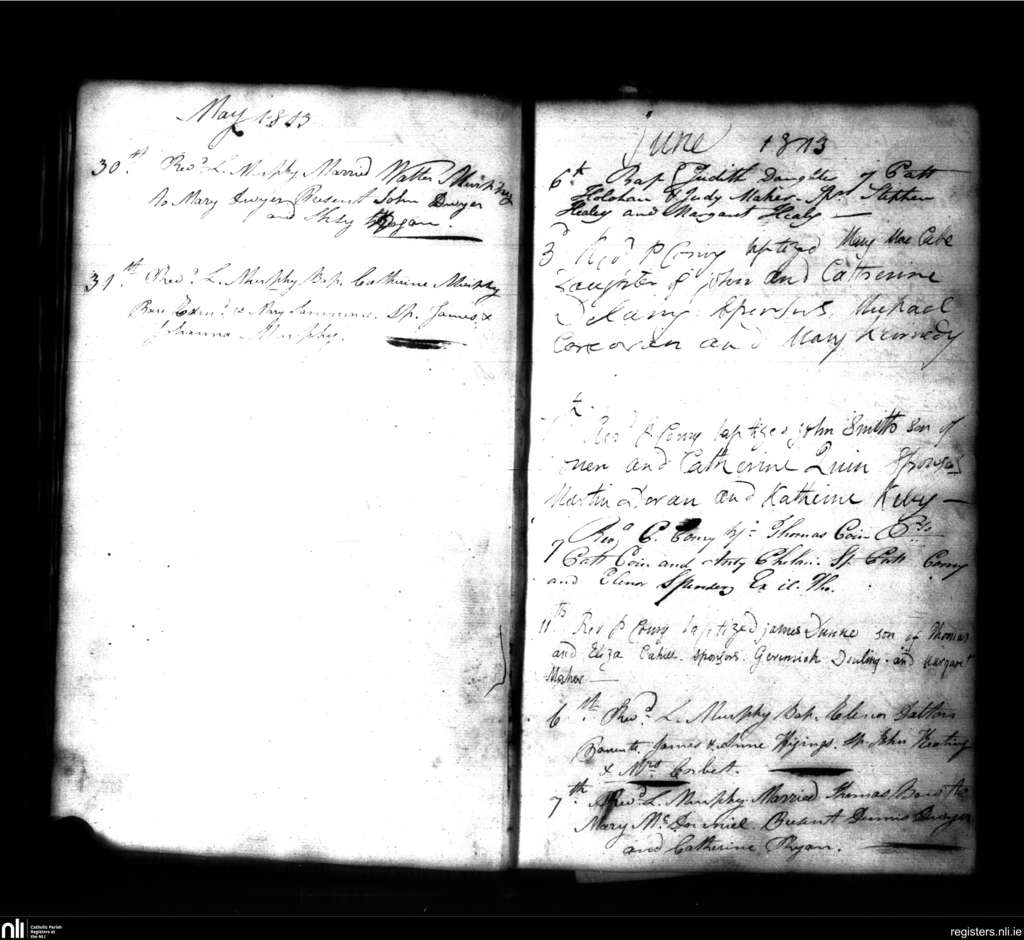 May 1813
30th Revd L. Murphy Married Walter Murphy
to Mary Dwyer Present John Dwyer
and Hogan.
31st Revd L. Murphy Bap. Catherine Murphy
Sp. James &
Murphy.
June 1813
6th Bap Judith Daughter of Patt
Holohan & Judy Maher. Spt Stephen
Healy and Margaret Healy
3d Revd P Conry baptized Mary Mac Cabe
Daughter of John and Catherine
Delany Sponsors. Michael
Corcoran and Mary Kennedy
th Revd P Conry baptized John Smith son of
owen and Catherine Quin Sponsors
Martin Doran and Katherine
7 Revd P. Conry Thomas Coin
Patt Coin and Sp. Patt Conry
and Elenor
11th Revd P Conry baptized james Dunne son of Thomas
and Eliza Cahill. sponsors. Geremiah Douling and Margaret
Maher
6th Revd L. Murphy Bap. Elenor Dalton
Parents. James & Anne Higings. Sp. John Keating
& Mrs Corbet.
7th Revd L. Murphy Married Thomas to
Mary Mc Present Dennis Dwyer
and Catherine Ryan.
nli
Catholic Parish
Registers at
the NLI
registers.nli.ie